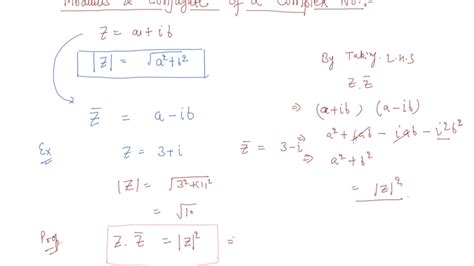 Modulus & Conjugate of a Complex No:-
z = a + ib
|z| = √a²+b²
z̄ = a - ib
Ex z = 3+i z̄ = 3-i
|z| = √3²+(1)²
= √10
Prof z. z̄ = |z|² =
By Taking L.H.S
z. z̄
⇒ (a+ib) (a-ib)
⇒ a² + iab - iab - i²b²
⇒ a² + b²
= |z|²